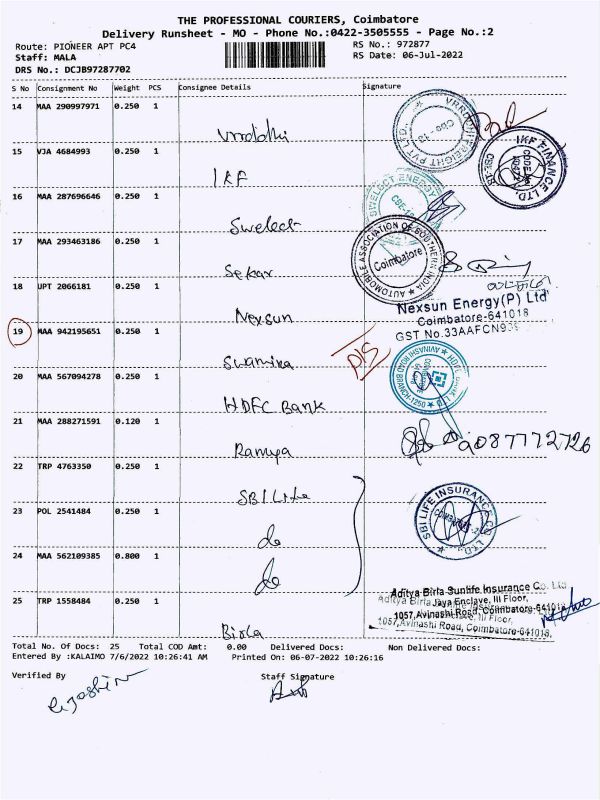 THE PROFESSIONAL COURIERS, Coimbatore
Delivery Runsheet - MO - Phone No.:0422-3505555 - Page No.:2
Route: PIONEER APT PC4
RS No.: 972877
Staff: MALA
RS Date: 06-Jul-2022
DRS No.: DCJB97287702
S No Consignment No Weight PCS Consignee Details Signature
14 MAA 290997971 0.250 1
Vrroddhi
VRRODDHI FREIGHT PVT LTD.
15 VJA 4684993 0.250 1
IKF
IKF FINANCE LTD.
16 MAA 287696646 0.250 1
Swelect
SWELECT ENERGY
17 MAA 293463186 0.250 1
Sekar
AUTOMOBILE ASSOCIATION OF SOUTHERN INDIA
Coimbatore
18 UPT 2066181 0.250 1
Nexsun
Nexsun Energy(P) Ltd
Coimbatore-641018
GST No.33AAFCN93
19 MAA 942195651 0.250 1
Swamina
D/S
20 MAA 567094278 0.250 1
HDFC Bank
21 MAA 288271591 0.120 1
Ramya
9087772726
22 TRP 4763350 0.250 1
SBI Life
SBI LIFE INSURANCE CO. LTD.
23 POL 2541484 0.250 1
do
24 MAA 562109385 0.800 1
do
25 TRP 1558484 0.250 1
Birla
Aditya Birla Sunlife Insurance Co. Ltd
Jaya Enclave, III Floor,
1057,Avinashi Road, Coimbatore-641018
Total No. Of Docs: 25 Total COD Amt: 0.00 Delivered Docs: Non Delivered Docs:
Entered By :KALAIMO 7/6/2022 10:26:41 AM Printed On: 06-07-2022 10:26:16
Verified By Staff Signature